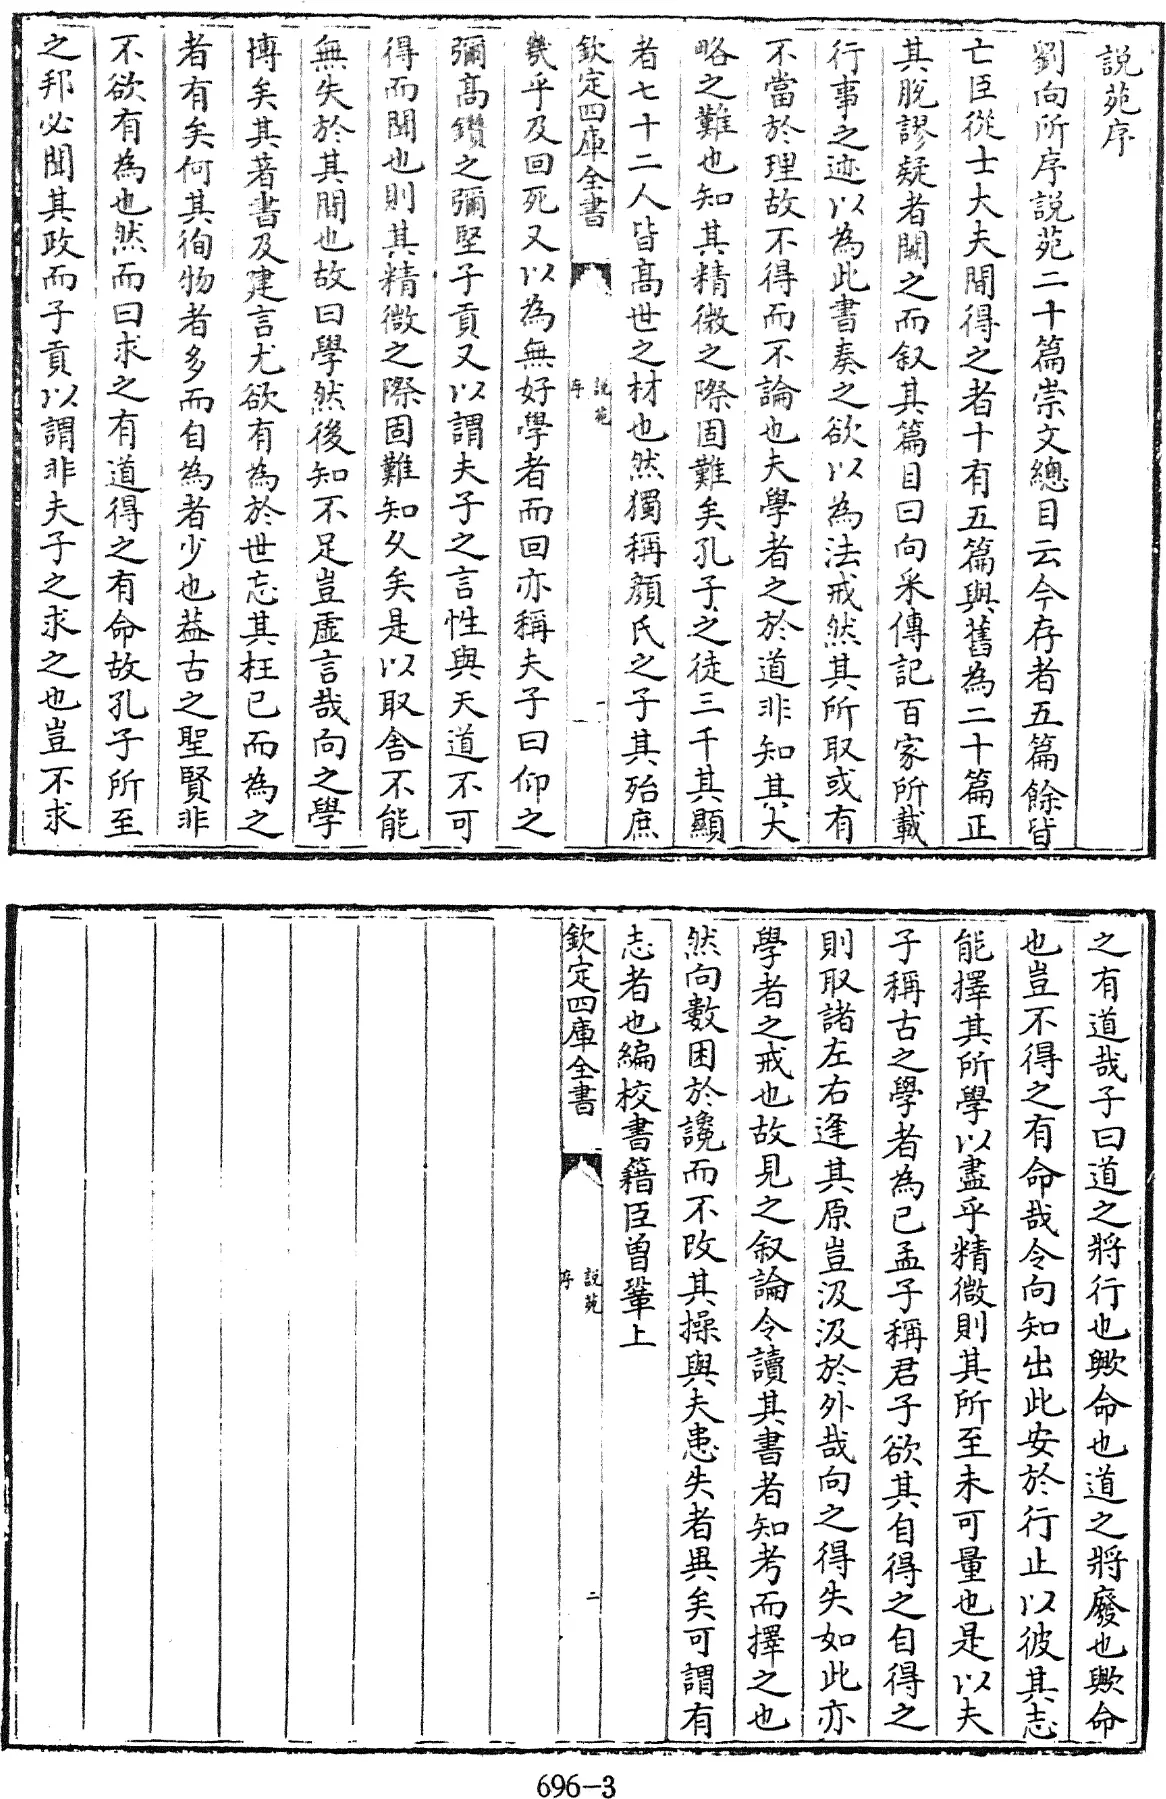 説苑序
劉向所序説苑二十篇崇文總目云今存者五篇餘皆
亡臣從士大夫間得之者十有五篇與舊為二十篇正
其脫謬疑者闕之而叙其篇目曰向采傳記百家所載
行事之迹以為此書奏之欲以為法戒然其所取或有
不當於理故不得而不論也夫學者之於道非知其大
略之難也知其精微之際固難矣孔子之徒三千其顯
者七十二人皆高世之材也然獨稱顔氏之子其殆庶
欽定四庫全書
説苑
序
一
幾乎及回死又以為無好學者而回亦稱夫子曰仰之
彌高鑽之彌堅子貢又以謂夫子之言性與天道不可
得而聞也則其精微之際固難知久矣是以取舍不能
無失於其間也故曰學然後知不足豈虛言哉向之學
博矣其著書及建言尤欲有為於世忘其枉已而為之
者有矣何其徇物者多而自為者少也葢古之聖賢非
不欲有為也然而曰求之有道得之有命故孔子所至
之邦必聞其政而子貢以謂非夫子之求之也豈不求
之有道哉子曰道之將行也歟命也道之將廢也歟命
也豈不得之有命哉令向知出此安於行止以彼其志
能擇其所學以盡乎精微則其所至未可量也是以夫
子稱古之學者為已孟子稱君子欲其自得之自得之
則取諸左右逢其原豈汲汲於外哉向之得失如此亦
學者之戒也故見之叙論令讀其書者知考而擇之也
然向數困於讒而不改其操與夫患失者異矣可謂有
志者也編校書籍臣曽鞏上
欽定四庫全書
説苑
序
二
696-3